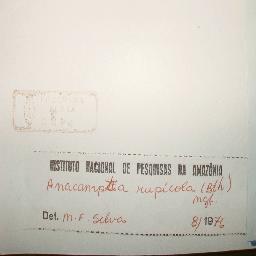 INSTITUTO NACIONAL DE PESQUISAS NA AMAZÔNIA
Anacampta rupicola (Bth)
Mgf.
Det. M. F. Silva 8/1976